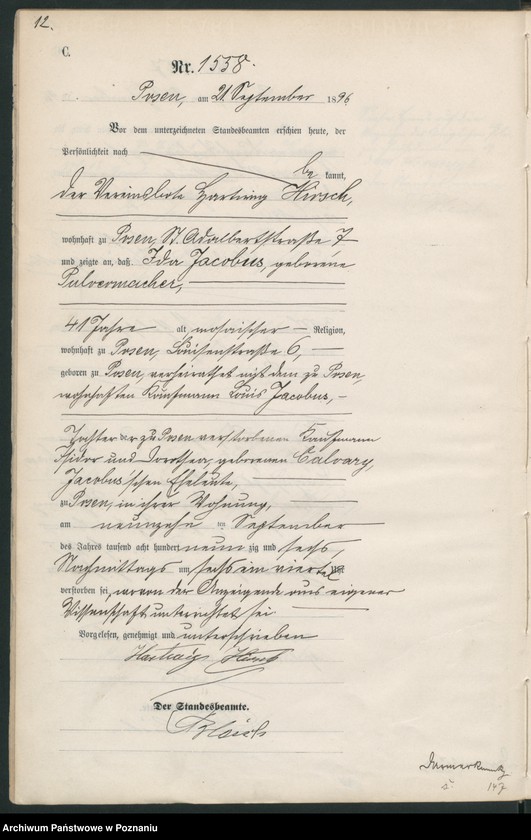 12.
C.
Nr. 1558.
Posen, am 21. September 1896
Vor dem unterzeichneten Standesbeamten erschien heute, der
Persönlichkeit nach
be kannt,
der Vereinsbote Hartwig Hirsch,
wohnhaft zu Posen, St. Adalbertstraße 7
und zeigte an, daß Ida Jacobus, geborene
Pulvermacher,
41 Jahre alt, mosaischer Religion,
wohnhaft zu Posen, Louisenstraße 6,
geboren zu Posen, verheirathet mit dem zu Posen,
wohnhaften Kaufmann Louis Jacobus,
Tochter der zu Posen verstorbenen Kaufmann
Isidor und Dorothea, geborenen Calvary,
Jacobus'schen Eheleute,
zu Posen, in ihrer Wohnung,
am neunzehn ten September
des Jahres tausend acht hundert neun zig und sechs,
Nachmittags um sechs ein viertel Uhr
verstorben sei, wovon der Anzeigende aus eigener
Wissenschaft unterrichtet sei
Vorgelesen, genehmigt und unterschrieben
Hartwig Hirsch
Der Standesbeamte.
147
Archiwum Państwowe w Poznaniu